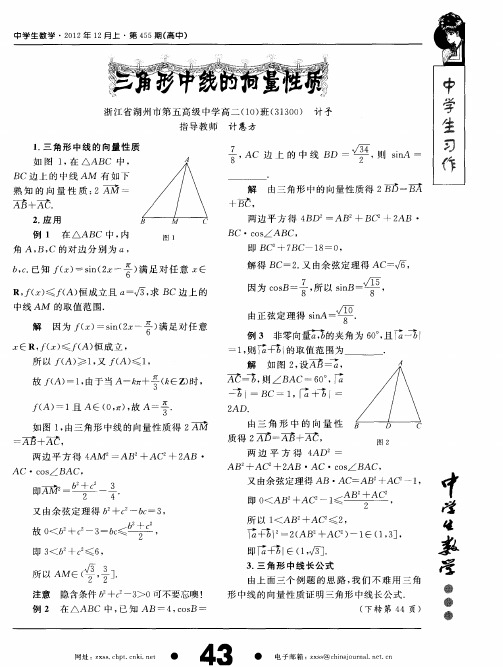 中学生数学·2012年12月上·第455期(高中)
三角形中线的向量性质
浙江省湖州市第五高级中学高二(10)班(31300) 计予
指导教师 计惠方
1.三角形中线的向量性质
如图1,在△ABC中,
BC边上的中线AM有如下
熟知的向量性质:2AM=
AB+AC.
2.应用
例1 在△ABC中,内
角A,B,C的对边分别为a,
A
B M C
图1
b,c.已知f(x)=sin(2x-π/6)满足对任意x∈
R,f(x)≤f(A)恒成立且a=√3,求BC边上的
中线AM的取值范围.
解 因为f(x)=sin(2x-π/6)满足对任意
x∈R,f(x)≤f(A)恒成立,
所以f(A)≥1,又f(A)≤1,
故f(A)=1,由于当A=kπ+π/3(k∈Z)时,
f(A)=1且A∈(0,π),故A=π/3.
如图1,由三角形中线的向量性质得2AM
=AB+AC,
两边平方得4AM²=AB²+AC²+2AB·
AC·cos∠BAC,
即AM²=(b²+c²)/2-3/4.
又由余弦定理得b²+c²-bc=3,
故0<b²+c²-3=bc≤(b²+c²)/2,
即3<b²+c²≤6,
所以AM∈(√3/2,3/2].
注意 隐含条件b²+c²-3>0可不要忘噢!
例2 在△ABC中,已知AB=4,cosB=
7/8,AC边上的中线BD=√34/2,则sinA=
.
解 由三角形中的向量性质得2BD=BA
+BC,
两边平方得4BD²=AB²+BC²+2AB·
BC·cos∠ABC,
即BC²+7BC-18=0,
解得BC=2.又由余弦定理得AC=√6,
因为cosB=7/8,所以sinB=√15/8,
由正弦定理得sinA=√10/8.
例3 非零向量a,b的夹角为60°,且|a-b|
=1,则|a+b|的取值范围为
解 如图2,设AB=a,
AC=b,则∠BAC=60°,|a
-b|=BC=1,|a+b|=
2AD.
由三角形中的向量性
质得2AD=AB+AC,
A
B D C
图2
两边平方得4AD²=
AB²+AC²+2AB·AC·cos∠BAC,
又由余弦定理得AB·AC=AB²+AC²-1,
即0<AB²+AC²-1≤(AB²+AC²)/2,
所以1<AB²+AC²≤2,
|a+b|²=2(AB²+AC²)-1∈(1,3],
即|a+b|∈(1,√3].
3.三角形中线长公式
由上面三个例题的思路,我们不难用三角
形中线的向量性质证明三角形中线长公式.
(下转第44页)
中学生习作
中学生数学
网址:zxss.cbpt.cnki.net
43
电子邮箱:zxss@chinajournal.net.cn